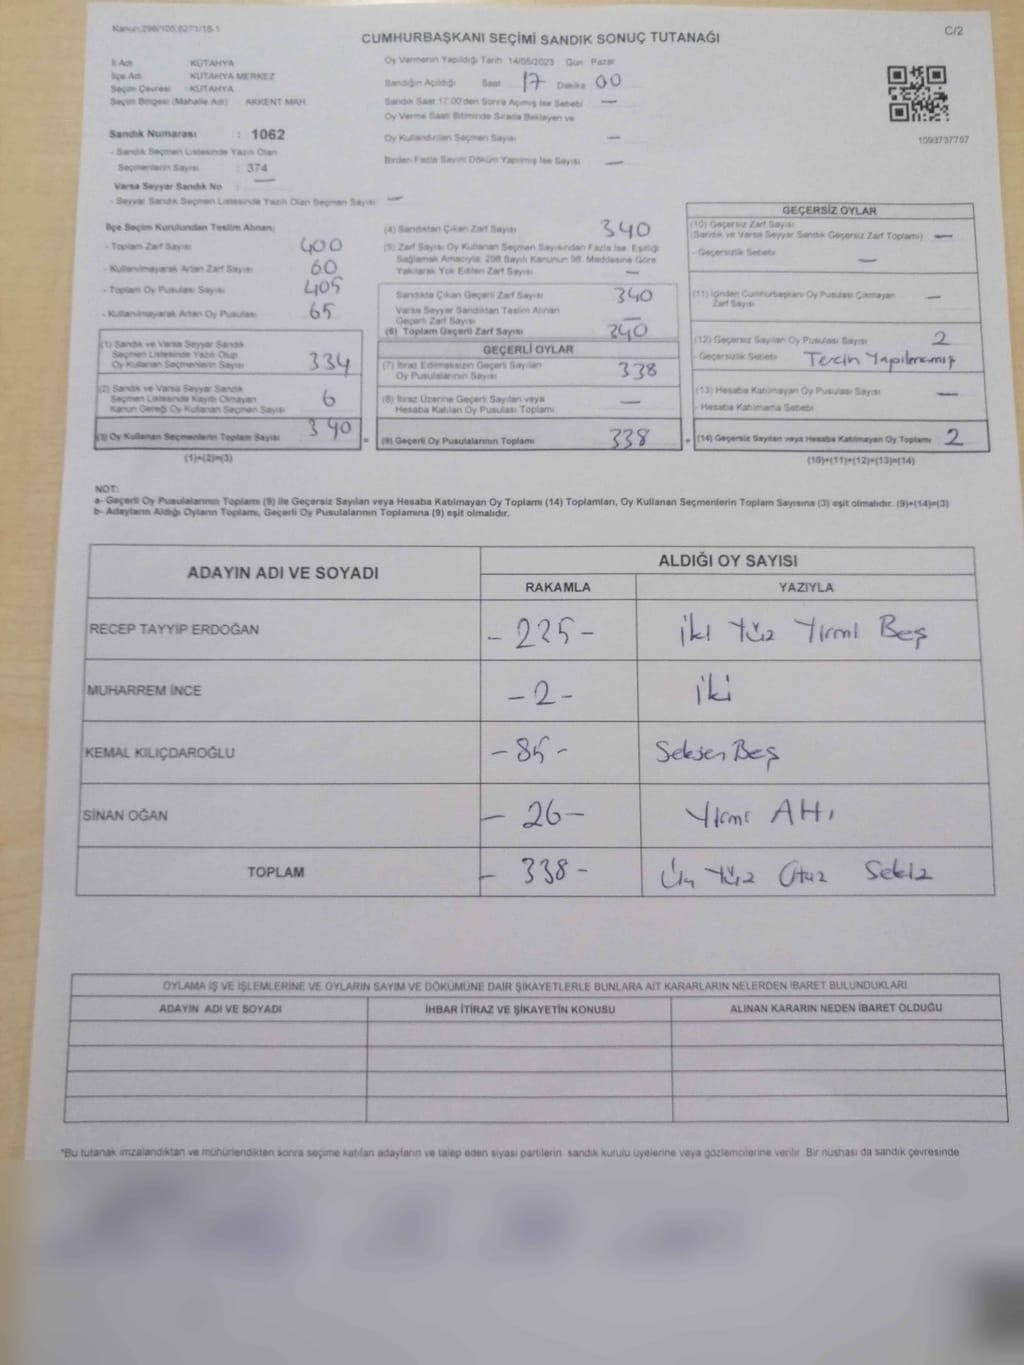 Kanun:298/105;6271/18-1
C/2
CUMHURBAŞKANI SEÇİMİ SANDIK SONUÇ TUTANAĞI
İl Adı KÜTAHYA
İlçe Adı KÜTAHYA MERKEZ
Seçim Çevresi : KÜTAHYA
Seçim Bölgesi (Mahalle Adı) AKKENT MAH.
Sandık Numarası : 1062
- Sandık Seçmen Listesinde Yazılı Olan
Seçmenlerin Sayısı : 374
Varsa Seyyar Sandık No : —
- Seyyar Sandık Seçmen Listesinde Yazılı Olan Seçmen Sayısı —
Oy Vermenin Yapıldığı Tarih 14/05/2023 Gün Pazar
Sandığın Açıldığı Saat 17 Dakika 00
Sandık Saat 17:00'den Sonra Açılmış İse Sebebi —
Oy Verme Saati Bitiminde Sırada Bekleyen ve
Oy Kullandırılan Seçmen Sayısı —
Birden Fazla Sayım Döküm Yapılmış İse Sayısı —
1093737757
İlçe Seçim Kurulundan Teslim Alınan;
- Toplam Zarf Sayısı 400
- Kullanılmayarak Artan Zarf Sayısı 60
- Toplam Oy Pusulası Sayısı 405
- Kullanılmayarak Artan Oy Pusulası 65
(1) Sandık ve Varsa Seyyar Sandık
Seçmen Listesinde Yazılı Olup
Oy Kullanan Seçmenlerin Sayısı 334
(2) Sandık ve Varsa Seyyar Sandık
Seçmen Listesinde Kayıtlı Olmayan
Kanun Gereği Oy Kullanan Seçmen Sayısı 6
(3) Oy Kullanan Seçmenlerin Toplam Sayısı 340 =
(1)+(2)=(3)
(4) Sandıktan Çıkan Zarf Sayısı 340
(5) Zarf Sayısı Oy Kullanan Seçmen Sayısından Fazla İse, Eşitliği
Sağlamak Amacıyla; 298 Sayılı Kanunun 98. Maddesine Göre
Yakılarak Yok Edilen Zarf Sayısı —
Sandıkta Çıkan Geçerli Zarf Sayısı 340
Varsa Seyyar Sandıktan Teslim Alınan
Geçerli Zarf Sayısı —
(6) Toplam Geçerli Zarf Sayısı 340
GEÇERLİ OYLAR
(7) İtiraz Edilmeksizin Geçerli Sayılan
Oy Pusulalarının Sayısı 338
(8) İtiraz Üzerine Geçerli Sayılan veya
Hesaba Katılan Oy Pusulası Toplamı —
(9) Geçerli Oy Pusulalarının Toplamı 338 +
GEÇERSİZ OYLAR
(10) Geçersiz Zarf Sayısı
(Sandık ve Varsa Seyyar Sandık Geçersiz Zarf Toplamı) —
- Geçersizlik Sebebi —
(11) İçinden Cumhurbaşkanı Oy Pusulası Çıkmayan
Zarf Sayısı —
(12) Geçersiz Sayılan Oy Pusulası Sayısı 2
- Geçersizlik Sebebi Tercih Yapılmamış
(13) Hesaba Katılmayan Oy Pusulası Sayısı —
- Hesaba Katılmama Sebebi
(14) Geçersiz Sayılan veya Hesaba Katılmayan Oy Toplamı 2
(10)+(11)+(12)+(13)=(14)
NOT:
a- Geçerli Oy Pusulalarının Toplamı (9) ile Geçersiz Sayılan veya Hesaba Katılmayan Oy Toplamı (14) Toplamları, Oy Kullanan Seçmenlerin Toplam Sayısına (3) eşit olmalıdır. (9)+(14)=(3)
b- Adayların Aldığı Oyların Toplamı, Geçerli Oy Pusulalarının Toplamına (9) eşit olmalıdır.
ADAYIN ADI VE SOYADI
ALDIĞI OY SAYISI
RAKAMLA YAZIYLA
RECEP TAYYİP ERDOĞAN - 225 - İki Yüz Yirmi Beş
MUHARREM İNCE - 2 - İki
KEMAL KILIÇDAROĞLU - 85 - Seksen Beş
SİNAN OĞAN - 26 - Yirmi Altı
TOPLAM - 338 - Üç Yüz Otuz Sekiz
OYLAMA İŞ VE İŞLEMLERİNE VE OYLARIN SAYIM VE DÖKÜMÜNE DAİR ŞİKAYETLERLE BUNLARA AİT KARARLARIN NELERDEN İBARET BULUNDUKLARI
ADAYIN ADI VE SOYADI İHBAR İTİRAZ VE ŞİKAYETİN KONUSU ALINAN KARARIN NEDEN İBARET OLDUĞU
*Bu tutanak imzalandıktan ve mühürlendikten sonra seçime katılan adayların ve talep eden siyasi partilerin sandık kurulu üyelerine veya gözlemcilerine verilir. Bir nüshası da sandık çevresinde